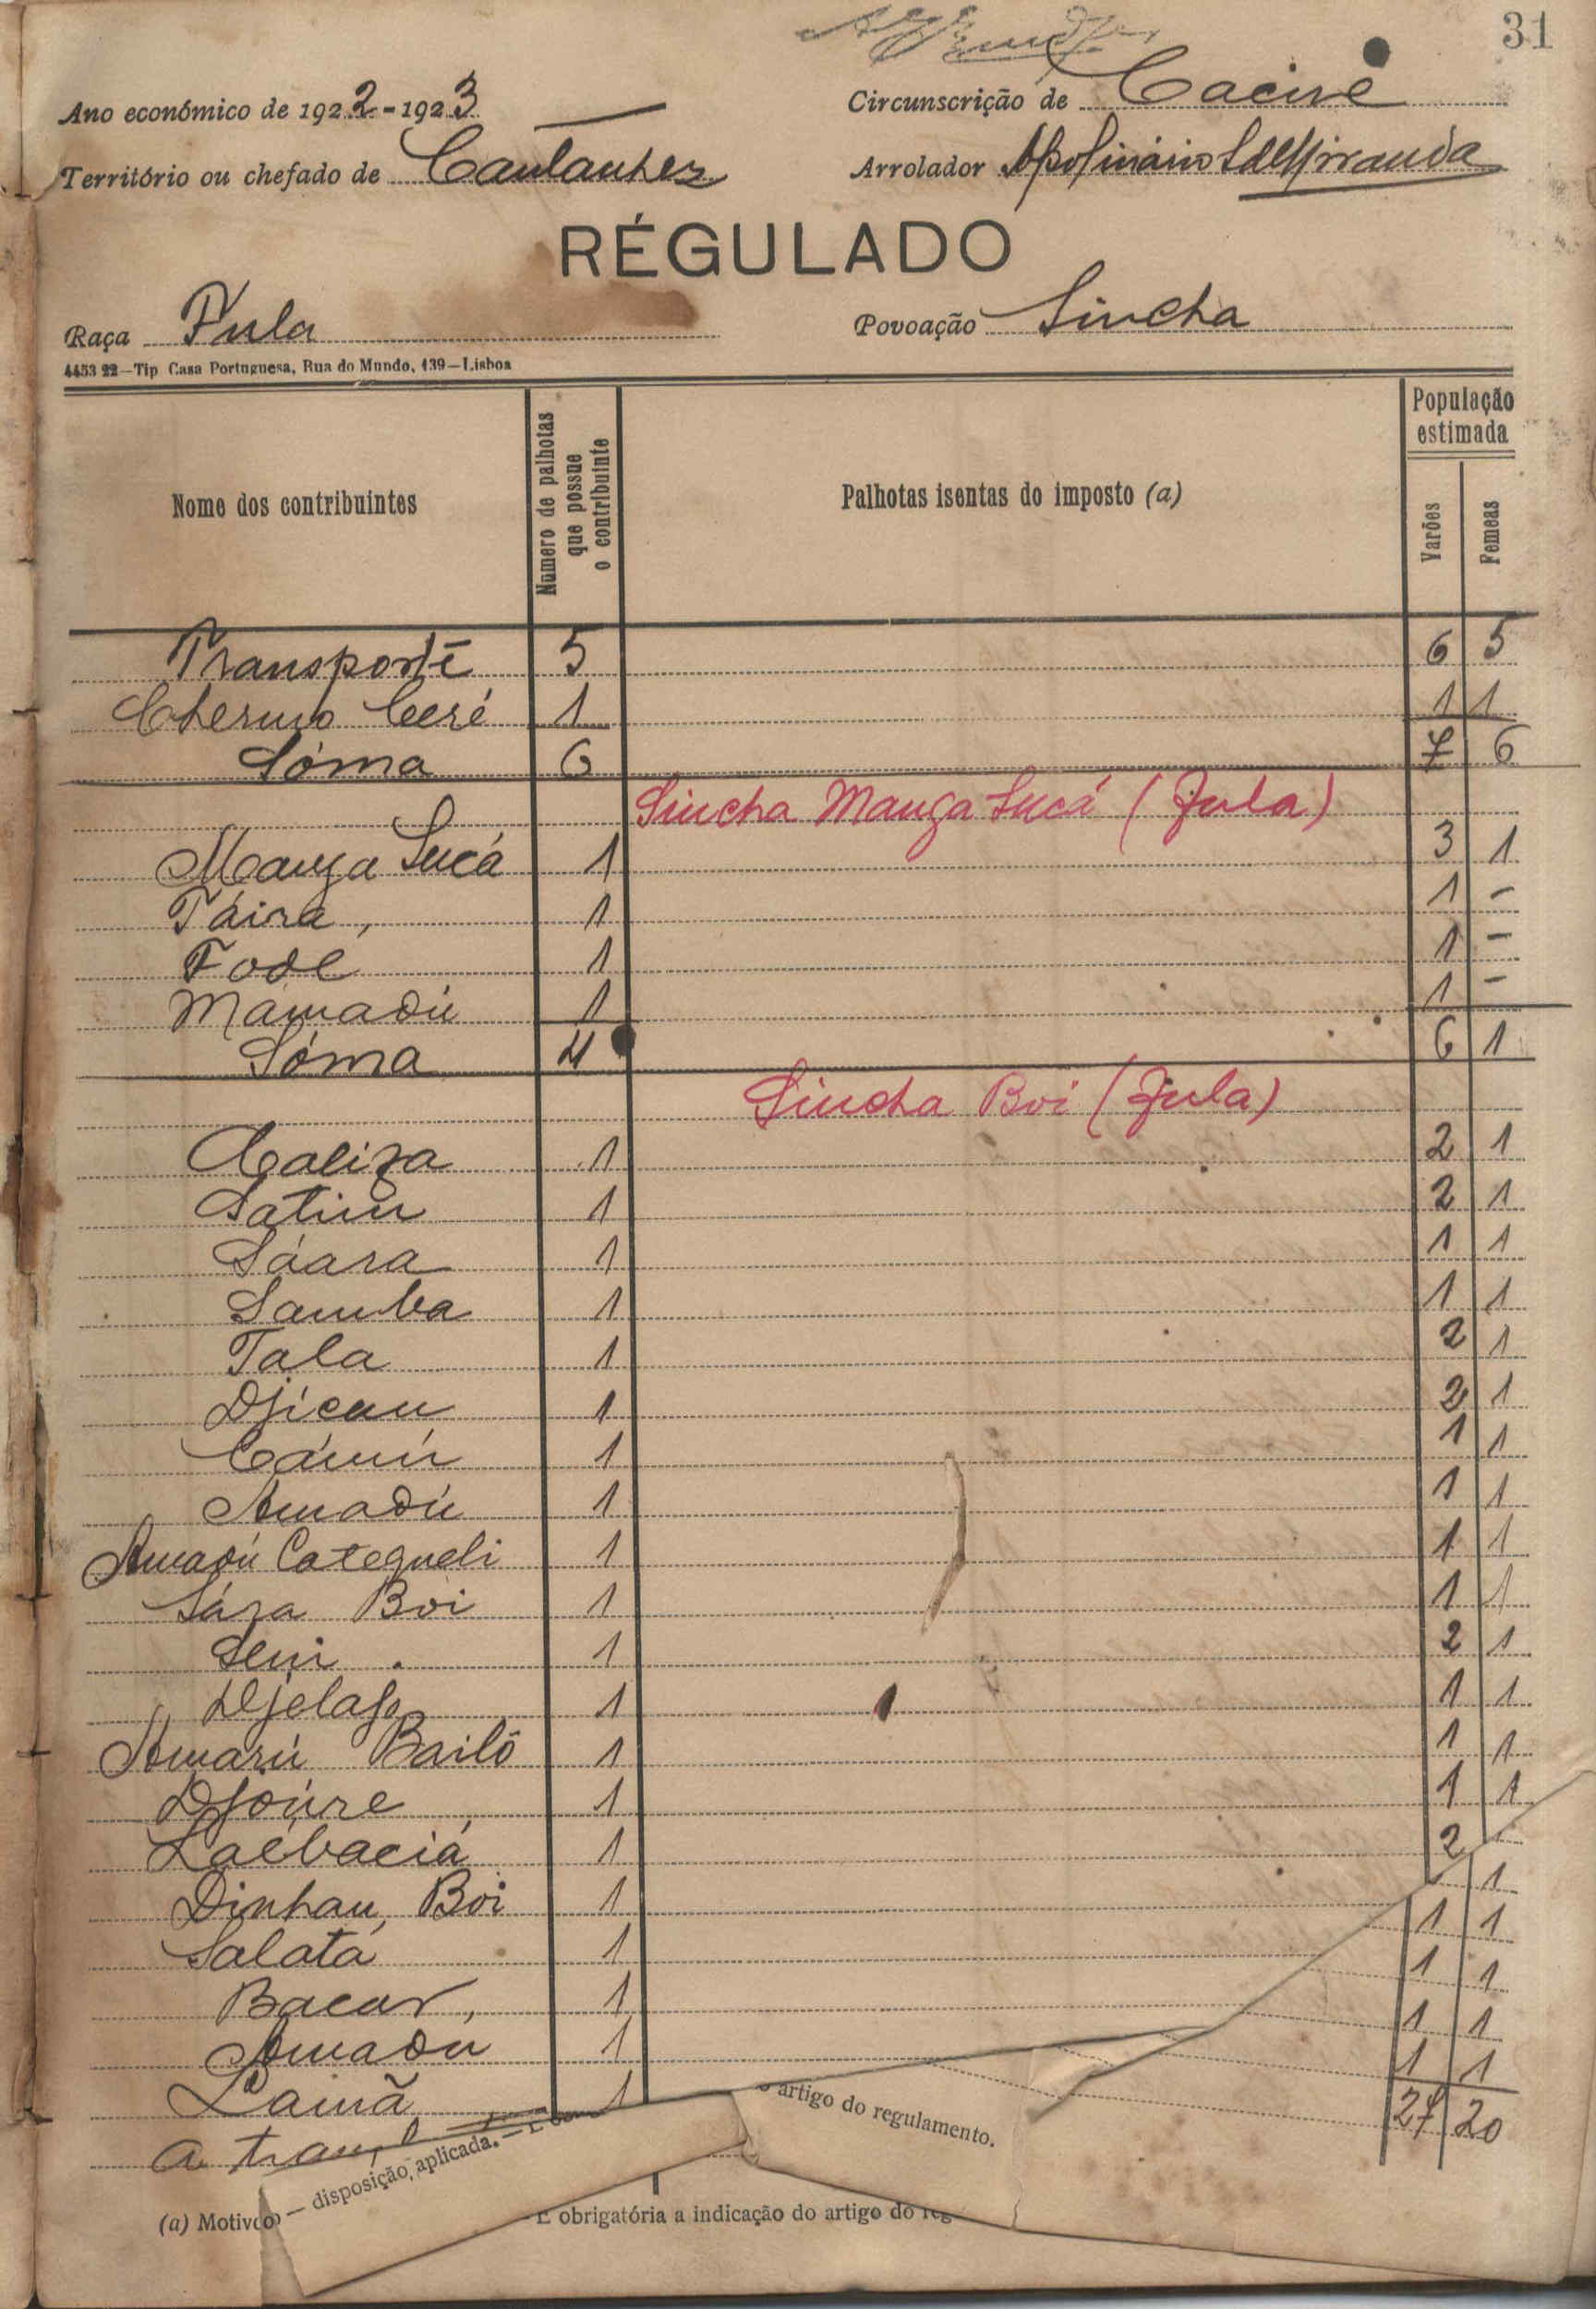 31
Ano económico de 1922-1923
Circunscrição de Caciné
Território ou chefado de Cantanhez
Arrolador Apolinário de Miranda
RÉGULADO
Raça Fula
Povoação Sincha
4453 22—Tip Casa Portuguesa, Rua do Mundo, 139—Lisboa
Nome dos contribuintes
Número de palhotas que possue o contribuinte
Palhotas isentas do imposto (a)
População estimada
Varões
Femeas
Transporte 5 6 5
Cherno Ceré 1 1 1
Sóma 6 7 6
Sincha Manga Sucá (Fula)
Manga Sucá 1 3 1
Táira 1 1 -
Fode 1 1 -
Mamadú 1 1 -
Sóma 4 6 1
Sincha Boi (Fula)
Caliza 1 2 1
Satiu 1 2 1
Sáara 1 1 1
Samba 1 1 1
Tala 1 2 1
Djicau 1 2 1
Cámú 1 1 1
Amadú 1 1 1
Amadú Categueli 1 1 1
Sára Boi 1 1 1
Seni 1 2 1
Djelafo 1 1 1
Amarú Bailó 1 1 1
Djoúre 1 1 1
Laébaciá 1 2
Dinhau Boi 1 1
Salatá 1 1 1
Bacar 1 1 1
Amadu 1 1 1
Lainã 1 1 1
27 20
a
(a) Motivo
— disposição, aplicada. —
artigo do regulamento.
É obrigatória a indicação do artigo do reg